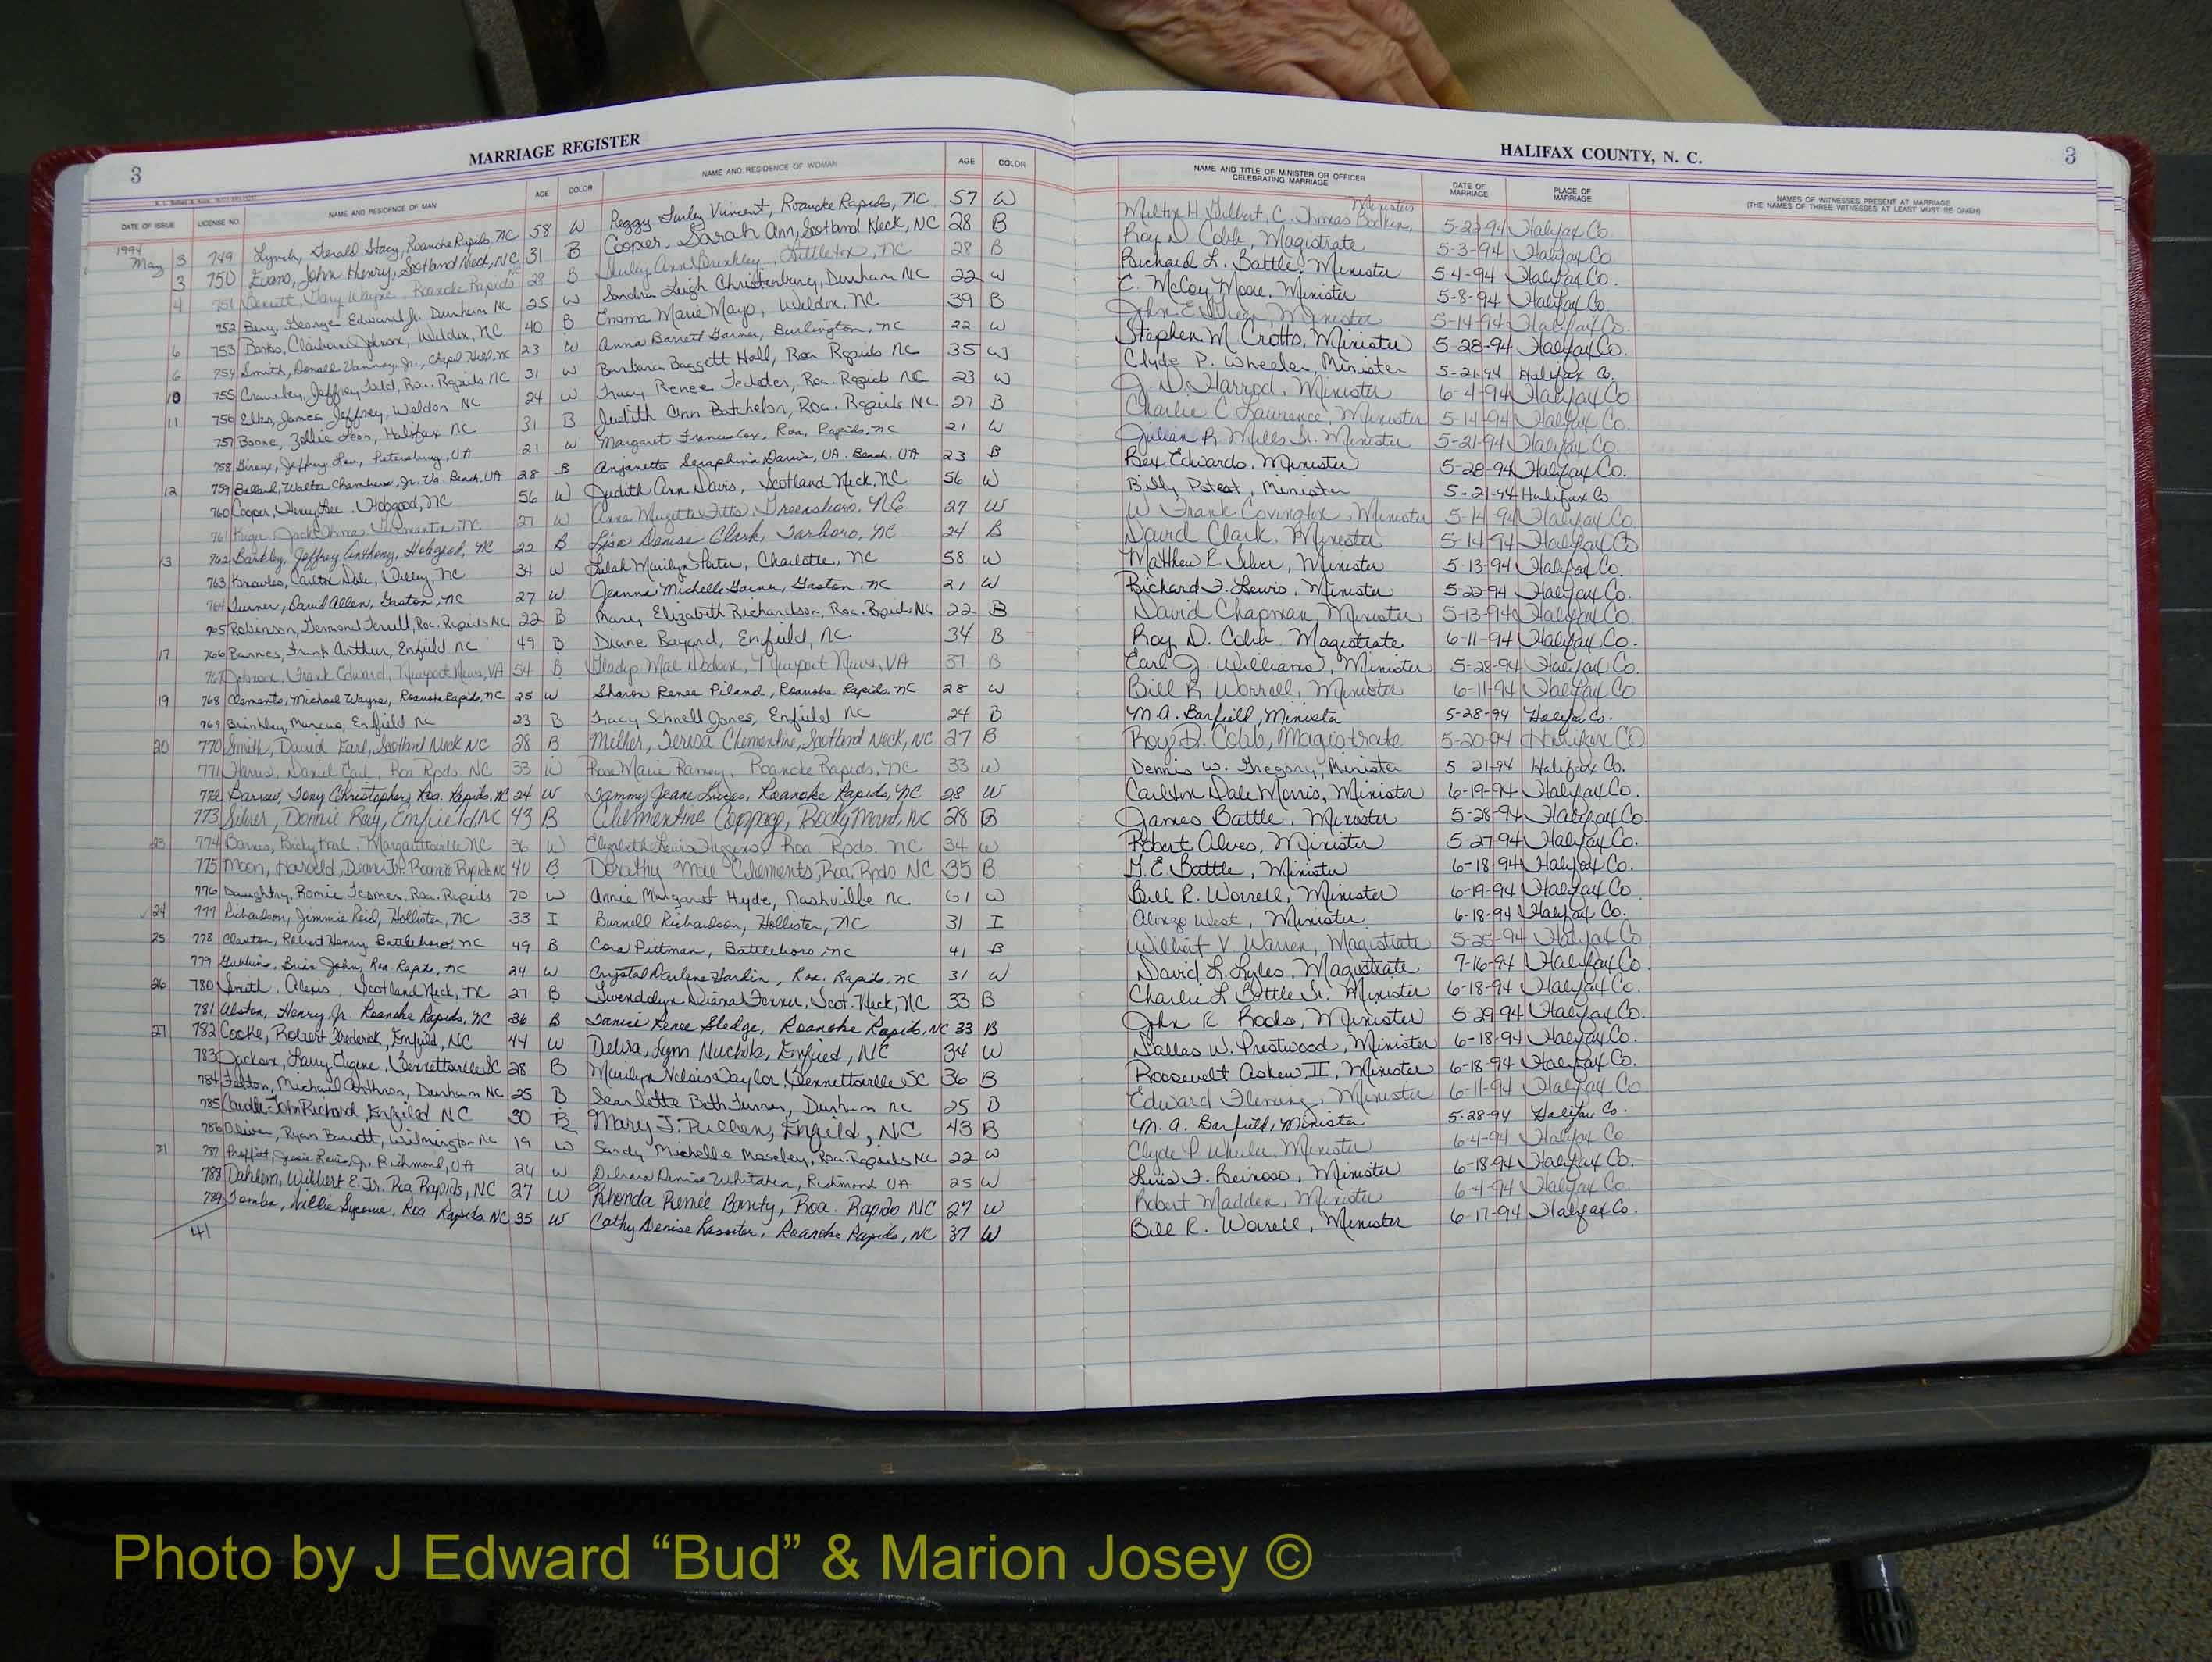 3 MARRIAGE REGISTER HALIFAX COUNTY, N. C. 3
DATE OF ISSUE LICENSE NO. NAME AND RESIDENCE OF MAN AGE COLOR NAME AND RESIDENCE OF WOMAN AGE COLOR NAME AND TITLE OF MINISTER OR OFFICER CELEBRATING MARRIAGE DATE OF MARRIAGE PLACE OF MARRIAGE NAMES OF WITNESSES PRESENT AT MARRIAGE (THE NAMES OF THREE WITNESSES AT LEAST MUST BE GIVEN)
1994 May 3 749 Lynch, Gerald Stacy, Roanoke Rapids, NC 58 W Peggy Vincent, Roanoke Rapids, NC 57 W Milton H. Gilbert, C. Thomas Ministers 5-22-94 Halifax Co.
3 750 Evans, John Henry, Scotland Neck, NC 31 B Cooper, Sarah Ann, Scotland Neck, NC 28 B Roy D. Cobb, Magistrate 5-3-94 Halifax Co.
4 751 Gary Wayne, Roanoke Rapids NC 28 B Shirley Ann Brinkley, Littleton, NC 28 B Richard L. Battle, Minister 5-4-94 Halifax Co.
752 Berg, George Edward Jr. Durham NC 25 W Sandra Leigh Christenbury, Durham NC 22 W E. McCoy Moore, Minister 5-8-94 Halifax Co
6 753 Banks, Claiborne Johnson, Weldon, NC 40 B Emma Marie Mayo, Weldon, NC 39 B John E. Minister 5-14-94 Halifax Co.
6 754 Smith, Donald Vannoy, Jr., Chapel Hill, NC 23 W Anna Barrett Garner, Burlington, NC 22 W Stephen M Crotts, Minister 5-28-94 Halifax Co.
10 755 Crawley, Jeffrey Todd, Roa. Rapids NC 31 W Barbara Baggett Hall, Roa Rapids NC 35 W Clyde P. Wheeler, Minister 5-21-94 Halifax Co.
11 756 Elks, James Jeffrey, Weldon NC 24 W Tracy Renee Roa. Rapids NC 23 W J. D. Harrod, Minister 6-4-94 Halifax Co
757 Boone, Zollie Leon, Halifax NC 31 B Judith Ann Batchelor, Roa. Rapids NC 27 B Charlie C Lawrence, Minister 5-14-94 Halifax Co.
758 Giroux, Jeffrey Petersburg, VA 21 W Margaret Frances Cox, Roa. Rapids, NC 21 W Julian R. Mills Sr. Minister 5-21-94 Halifax Co.
12 759 Ballard, Walter Chambers, Jr. Va. Beach, VA 28 B Anjanette Seraphina Davis, VA. Beach. VA 23 B Rex Edwards, Minister 5-28-94 Halifax Co.
760 Cooper, Henry Lee, Hobgood, NC 56 W Judith Ann Davis, Scotland Neck, NC 56 W Billy Poteat, Minister 5-21-94 Halifax Co
761 Jack Thomas, NC 27 W Anna Muzette Fitts, Greensboro, NC 27 W W Frank Covington, Minister 5-14-94 Halifax Co.
13 762 Barkley, Jeffrey Anthony, Hobgood, NC 22 B Lisa Denise Clark, Tarboro, NC 24 B David Clark, Minister 5-14-94 Halifax Co
763 Knowles, Carlton Dale, NC 34 W Lelah Marilyn Pater, Charlotte, NC 58 W Matthew R. Silver, Minister 5-13-94 Halifax Co.
764 Turner, David Allen, Gaston, NC 27 W Jeanna Michelle Garner, Gaston, NC 21 W Richard F. Lewis, Minister 5-22-94 Halifax Co.
765 Robinson, Jermond Terrell, Roa. Rapids NC 22 B Mary Elizabeth Richardson, Roa. Rapids NC 22 B David Chapman, Minister 5-13-94 Halifax Co.
17 766 Barnes, Frank Arthur, Enfield NC 49 B Diane Baynard, Enfield, NC 34 B Roy D. Cobb, Magistrate 6-11-94 Halifax Co.
767 Johnson, Frank Edward, Newport News, VA 54 B Gladys Mae Dodson, Newport News, VA 37 B Earl J. Williams, Minister 5-28-94 Halifax Co.
19 768 Clements, Michael Wayne, Roanoke Rapids, NC 25 W Sharon Renee Piland, Roanoke Rapids, NC 28 W Bill R. Worrell, Minister 6-11-94 Halifax Co
769 Brinkley, Marcus, Enfield NC 23 B Tracy Schnell Jones, Enfield NC 24 B M.A. Barfield, Minister 5-28-94 Halifax Co.
20 770 Smith, David Earl, Scotland Neck NC 28 B Miller, Teresa Clementine, Scotland Neck, NC 27 B Roy D. Cobb, Magistrate 5-20-94 Halifax CO
771 Harris, Daniel Carl, Roa Rpds. NC 33 W Rose Marie Ramey, Roanoke Rapids, NC 33 W Dennis W. Gregory, Minister 5 21-94 Halifax Co.
772 Barrow, Tony Christopher, Roa. Rapids, NC 24 W Tammy Jeane Lucas, Roanoke Rapids, NC 28 W Carlton Dale Morris, Minister 6-19-94 Halifax Co.
773 Silver, Donnie Ray, Enfield NC 43 B Clementine Coppage, Rocky Mount, NC 28 B James Battle, Minister 5-28-94 Halifax Co.
23 774 Barnes, Ricky Karl, Margarettsville NC 36 W Elizabeth Lewis Higgins, Roa. Rpds. NC 34 W Robert Alves, Minister 5-27-94 Halifax Co.
775 Moon, Harold, Deans Jr. Roanoke Rapids NC 40 B Dorothy Mae Clements, Roa. Rpds NC 35 B H. E. Battle, Minister 6-18-94 Halifax Co.
776 Daughtry, Romie Roa. Rapids 70 W Annie Margaret Hyde, Nashville NC 61 W Bill R. Worrell, Minister 6-19-94 Halifax Co
✓24 777 Richardson, Jimmie Reid, Hollister, NC 33 I Burnell Richardson, Hollister, NC 31 I Alonzo West, Minister 6-18-94 Halifax Co.
25 778 Clanton, Robert Henry, Battleboro, NC 49 B Cora Pittman, Battleboro, NC 41 B Wilbert V. Warren, Magistrate 5-25-94 Halifax Co
779 Brian John, Roa Rapids, NC 24 W Crystal Darlene Hardin, Roa. Rapids, NC 31 W David L. Lyles, Magistrate 7-16-94 Halifax Co
26 780 Smith, Alexis, Scotland Neck, NC 27 B Gwendolyn Diana Joyner, Scot. Neck, NC 33 B Charlie L Battle Sr. Minister 6-18-94 Halifax Co.
781 Alston, Henry Jr. Roanoke Rapids, NC 36 B Janice Renee Sledge, Roanoke Rapids, NC 33 B John R Minister 5-29-94 Halifax Co.
27 782 Cooke, Robert Frederick, Enfield, NC 44 W Debra, Lynn Nuchols, Enfield, NC 34 W Dallas W. Prestwood, Minister 6-18-94 Halifax Co.
783 Jackson, Larry Eugene, Bennettsville SC 28 B Marilyn Velois Taylor, Bennettsville SC 36 B Roosevelt Askew, II, Minister 6-18-94 Halifax Co.
784 Felton, Michael Anthron, Durham NC 25 B Beth Turner, Durham NC 25 B Edward Fleming, Minister 6-11-94 Halifax Co
785 Caudle, John Richard, Enfield NC 30 B Mary J. Pullen, Enfield, NC 43 B M. A. Barfield, Minister 5-28-94 Halifax Co.
786 Oliver, Ryan Barrett, Wilmington NC 19 W Sandy Michelle Moseley, Roa. Rapids NC 22 W Clyde P Wheeler, Minister 6-4-94 Halifax Co
31 787 Proffitt, Jessie Lewis, Jr. Richmond, VA 24 W Denise Whitaker, Richmond VA 25 W Luis F. Reinoso, Minister 6-18-94 Halifax Co.
788 Dahlem, Wilbert E. Jr. Roa Rapids, NC 27 W Rhonda Renée Bounty, Roa. Rapids NC 27 W Robert Madden, Minister 6-4-94 Halifax Co
789 Willie Roa Rapids NC 35 W Cathy Denise Rassiter, Roanoke Rapids, NC 37 W Bill R. Worrell, Minister 6-17-94 Halifax Co.
41
Photo by J Edward “Bud” & Marion Josey ©